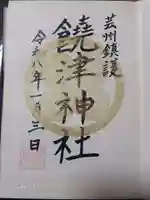 芸州鎮護
饒津神社
令和八年一月三日